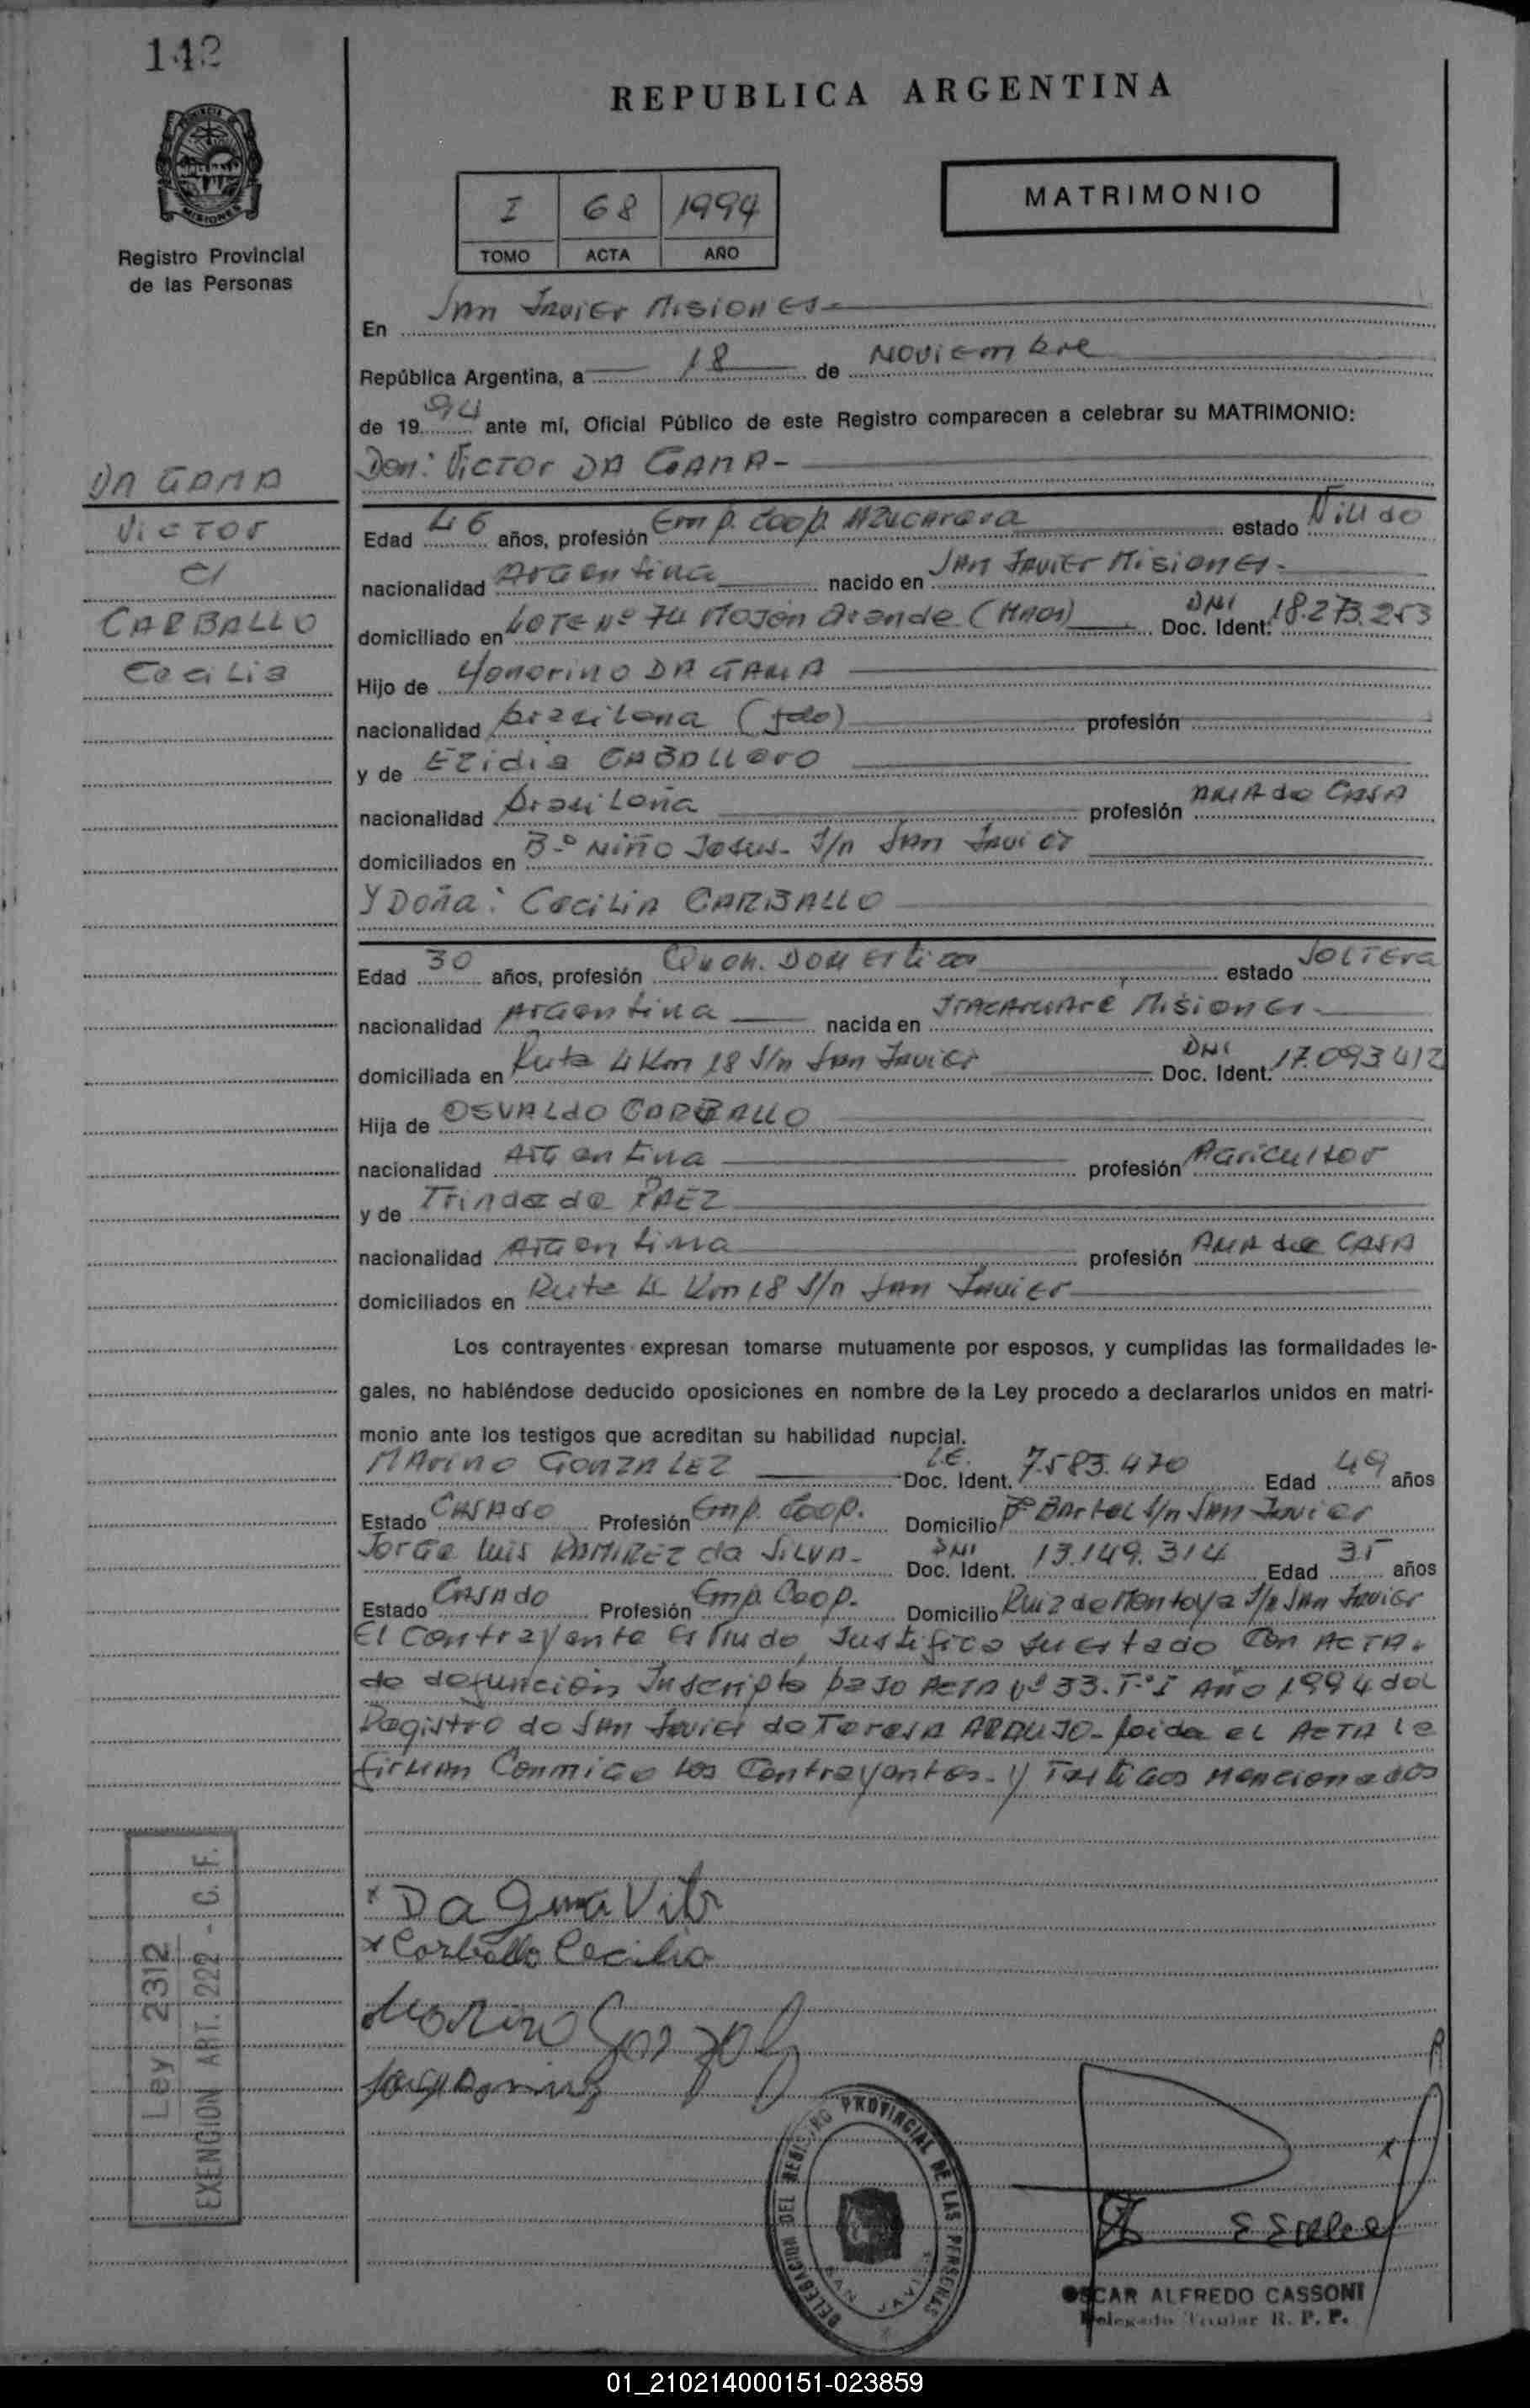 142
REPUBLICA ARGENTINA
MATRIMONIO
I 68 1994
TOMO ACTA AÑO
PROVINCIA DE
MISIONES
Registro Provincial
de las Personas
En San Javier Misiones-
República Argentina, a 18 de Noviembre
de 1994 ante mí, Oficial Público de este Registro comparecen a celebrar su MATRIMONIO:
Don: Victor DA GAMA-
DA GAMA
Victor
c/
CARBALLO
Cecilia
Edad 46 años, profesión Emp. Coop. Azucarera estado Viudo
nacionalidad Argentina nacido en San Javier Misiones-
domiciliado en Lote Nº 74 Mojón Grande (Mnes) Doc. Ident. DNI 18.273.253
Hijo de Honorino DA GAMA
nacionalidad brasilena (fdo) profesión
y de Ezidia CABALLERO
nacionalidad brasileña profesión AMA de CASA
domiciliados en Bº Niño Jesus- S/n San Javier
Y Doña: Cecilia CARBALLO
Edad 30 años, profesión Queh. Domesticos estado Soltera
nacionalidad Argentina nacida en Itacaruare Misiones-
domiciliada en Ruta 4 Km 18 S/n San Javier Doc. Ident. DNI 17.093412
Hija de OSVALdo CARBALLO
nacionalidad Argentina profesión Agricultor
y de Trindade PAEZ
nacionalidad Argentina profesión AMA de CASA
domiciliados en Ruta 4 Km 18 S/n San Javier
Los contrayentes expresan tomarse mutuamente por esposos, y cumplidas las formalidades le-
gales, no habiéndose deducido oposiciones en nombre de la Ley procedo a declararlos unidos en matri-
monio ante los testigos que acreditan su habilidad nupcial.
Marino GONZALEZ Doc. Ident. L.E. 7.583.470 Edad 49 años
Estado Casado Profesión Emp. Coop. Domicilio Bº S/n San Javier
Jorge Luis RAMIREZ da SILVA- Doc. Ident. DNI 13.149.314 Edad 35 años
Estado Casado Profesión Emp. Coop. Domicilio Ruiz de Montoya S/n San Javier
El Contrayente es Viudo, Justifica su estado con ACTA.
de defunción Inscripta bajo ACTA Nº 33. Tº I Año 1994 del
Registro de San Javier de Teresa ARAUJO- leida el ACTA la
firman Conmigo los Contrayentes- y Testigos Mencionados
Ley 2312
EXENCION ART. 222 - C. F.
x Da Gama
x Carballo Cecilia
Marino
DELEGACION DEL REGISTRO PROVINCIAL DE LAS PERSONAS
SAN JAVIER
OSCAR ALFREDO CASSONI
Delegado Titular R. P. P.
01_210214000151-023859